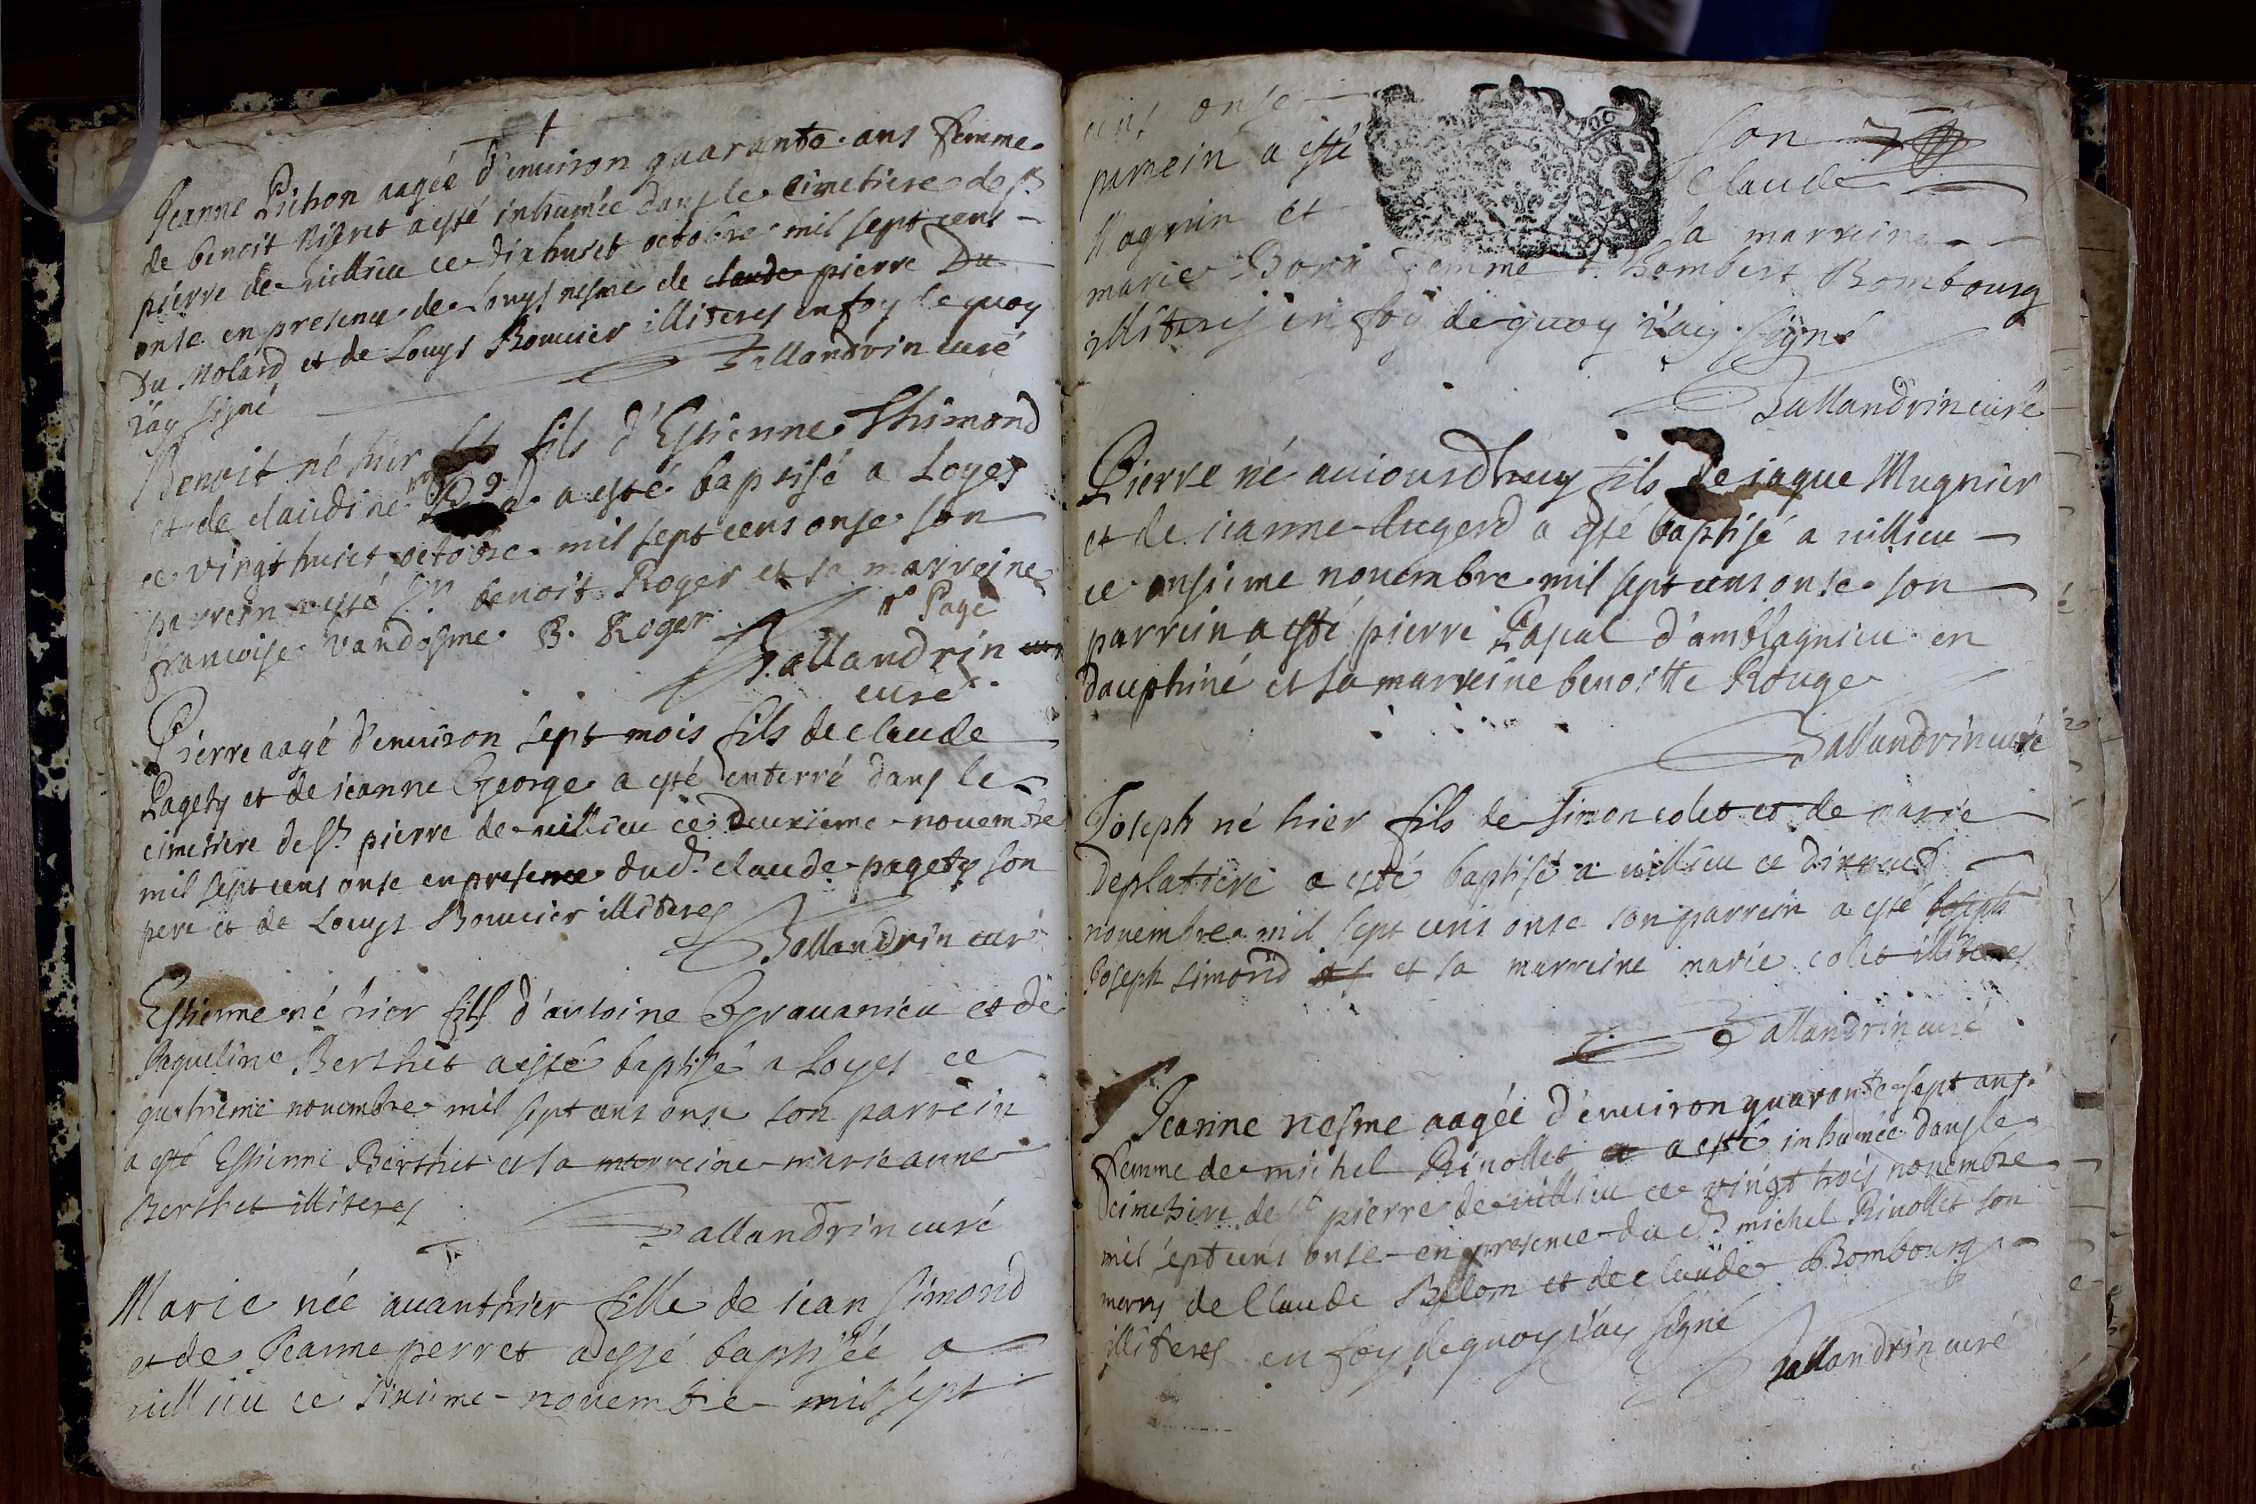 Jeanne Pichon aagée d'enuiron quarante ans femme
de benoit Nigret a esté inhumée dans le cimetiere de st
pierre de uillieu ce dixhuict octobre mil sept cens
onse en presence de Louys nesme de claude pierre Du
Du Molard et de Louys Bouuier illiteres en foy de quoy
i'ay signé Ballandrin curé
Benoit né hier fils d'Estienne Thimond
et de claudine a esté baptisé a Loyes
ce vingt huict octobre mil sept cens onse son
parrein a esté Sr benoit Roger et sa marreine
francoise Vandosme B. Roger Page
Ballandrin
curé
Pierre aagé d'enuiron sept mois fils de claude
Pagety et de ieanne George a esté enterré dans le
cimetiere de St pierre de uillieu ce deuxieme nouembre
mil sept cens onse en presence dud. claude pagety son
pere et de Louys Bouuier illiteres
Ballandrin curé
Estienne né hier fils d'antoine Grauanieu et de
Jaqueline Berthet a esté baptisé a Loyes ce
quatrieme nouembre mil sept cens onse son parrein
a esté Estienne Berthet et sa marreine marie anne
Berthet illiteres
Ballandrin curé
Marie née auanthier fille de iean simond
et de Jeanne perret a esté baptisée a
uillieu ce sixieme nouembre mil sept
cens onse son
parrein a esté Claude
Magnin et sa marreine
marie femme d. hombert Bombourg
illiteres en foy de quoy i'ay signé
Ballandrin curé
Pierre né auiourdhuy fils de iaque Mugnier
et de ieanne Augerd a esté baptisé a uillieu
ce onsieme nouembre mil sept cens onse son
parrein a esté pierre Pascal d'amblagnieu en
dauphiné et sa marreine benoitte Rouge
Ballandrin curé
Joseph né hier fils de simon colet et de marie
Deplatiere a esté baptisé a uillieu ce dixneuf
nouembre mil sept cens onse son parrein a esté Joseph
Joseph simond et sa marreine marie colet illiteres
Ballandrin curé
Jeanne nesme aagée d'enuiron quarante sept ans
femme de michel Riuollet a esté inhumée dans le
cimetiere de St pierre de uillieu ce vingt trois nouembre
mil sept cens onse en presence du d. michel Riuollet son
marry de Claude Belom et de claude Bombourg
illiteres en foy de quoy i'ay signé
Ballandrin curé